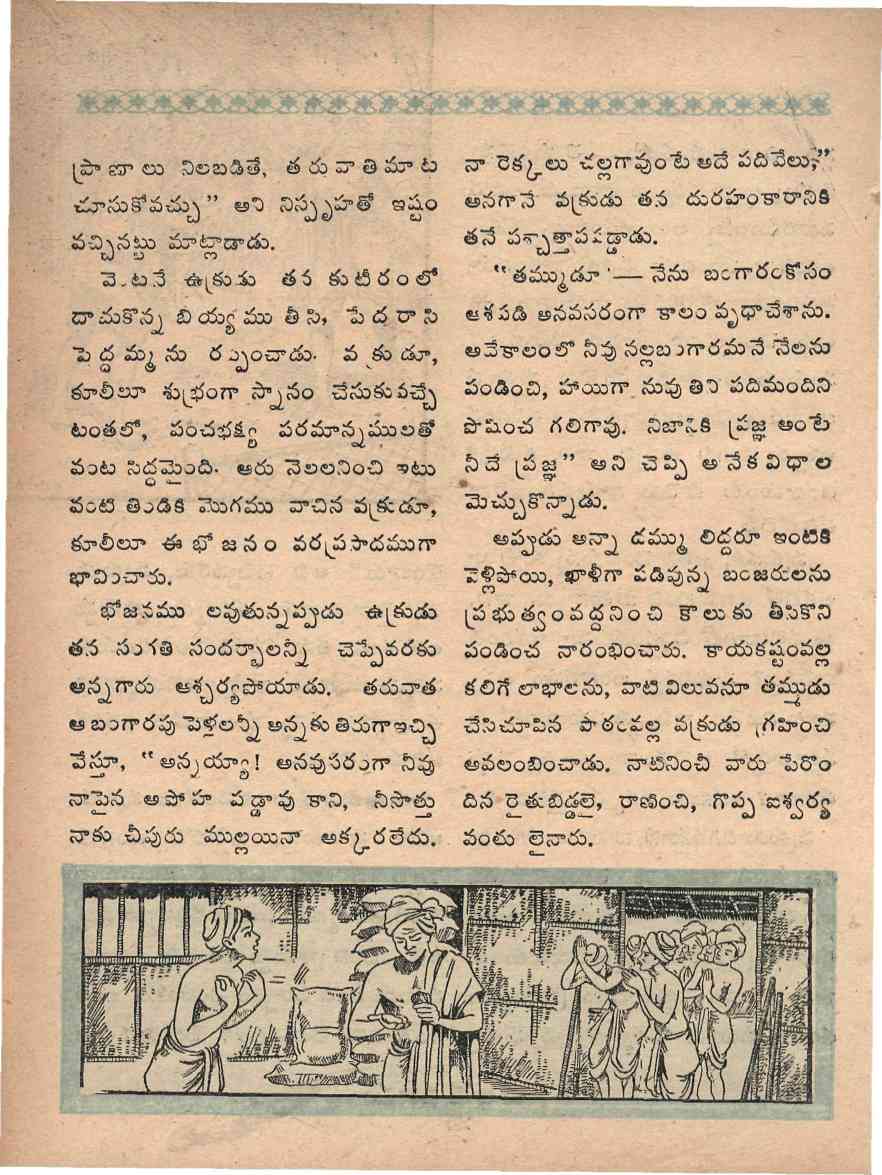 ప్రాణాలు నిలబడితే, తరువాతిమాట
చూసుకోవచ్చు” అని నిస్పృహతో ఇష్టం
వచ్చినట్టు మాట్లాడాడు.
వెంటనే ఉక్రుడు తన కుటీరంలో
దాచుకొన్న బియ్యము తీసి, పేదరాసి
పెద్దమ్మను రప్పించాడు. వక్రుడూ,
కూలీలూ శుభ్రంగా స్నానం చేసుకువచ్చే
టంతలో, పంచభక్ష్య పరమాన్నములతో
వంట సిద్ధమైంది. ఆరు నెలలనించి ఇటు
వంటి తిండికి మొగము వాచిన వక్రుడూ,
కూలీలూ ఈ భోజనం వరప్రసాదముగా
భావించారు.
భోజనము లవుతున్నప్పుడు ఉక్రుడు
తన సంగతి సందర్భాలన్నీ చెప్పేవరకు
అన్నగారు ఆశ్చర్యపోయాడు. తరువాత
ఆ బంగారపు పెళ్లలన్నీ అన్నకు తిరుగా ఇచ్చి
వేస్తూ, “అన్నయ్యా! అనవుసరంగా నీవు
నాపైన అపోహ పడ్డావు కాని, నీసొత్తు
నాకు చీపురు ముల్లయినా అక్కరలేదు.
నా రెక్కలు చల్లగావుంటే అదే పదివేలు,”
అనగానే వక్రుడు తన దురహంకారానికి
తనే పశ్చాత్తాపపడ్డాడు.
“తమ్ముడూ — నేను బంగారంకోసం
ఆశపడి అనవసరంగా కాలం వృధాచేశాను.
అవేకాలంలో నీవు నల్లబంగారమనే నేలను
పండించి, హాయిగా నువు తిని పదిమందిని
పొషించ గలిగావు. నిజానికి ప్రజ్ఞ అంటే
నీదే ప్రజ్ఞ” అని చెప్పి అనేకవిధాల
మెచ్చుకొన్నాడు.
అప్పుడు అన్నా డమ్ము లిద్దరూ ఇంటికి
వెళ్లిపోయి, ఖాళీగా పడివున్న బంజరులను
ప్రభుత్వంవద్దనించి కౌలుకు తీసికొని
పండించ నారంభించారు. కాయకష్టంవల్ల
కలిగే లాభాలను, వాటి విలువనూ తమ్ముడు
చేసిచూపిన పాఠంవల్ల వక్రుడు గ్రహించి
అవలంబించాడు. నాటినించీ వారు పేరొం
దిన రైతుబిడ్డలై, రాణించి, గొప్ప ఐశ్వర్య
వంతు లైనారు.